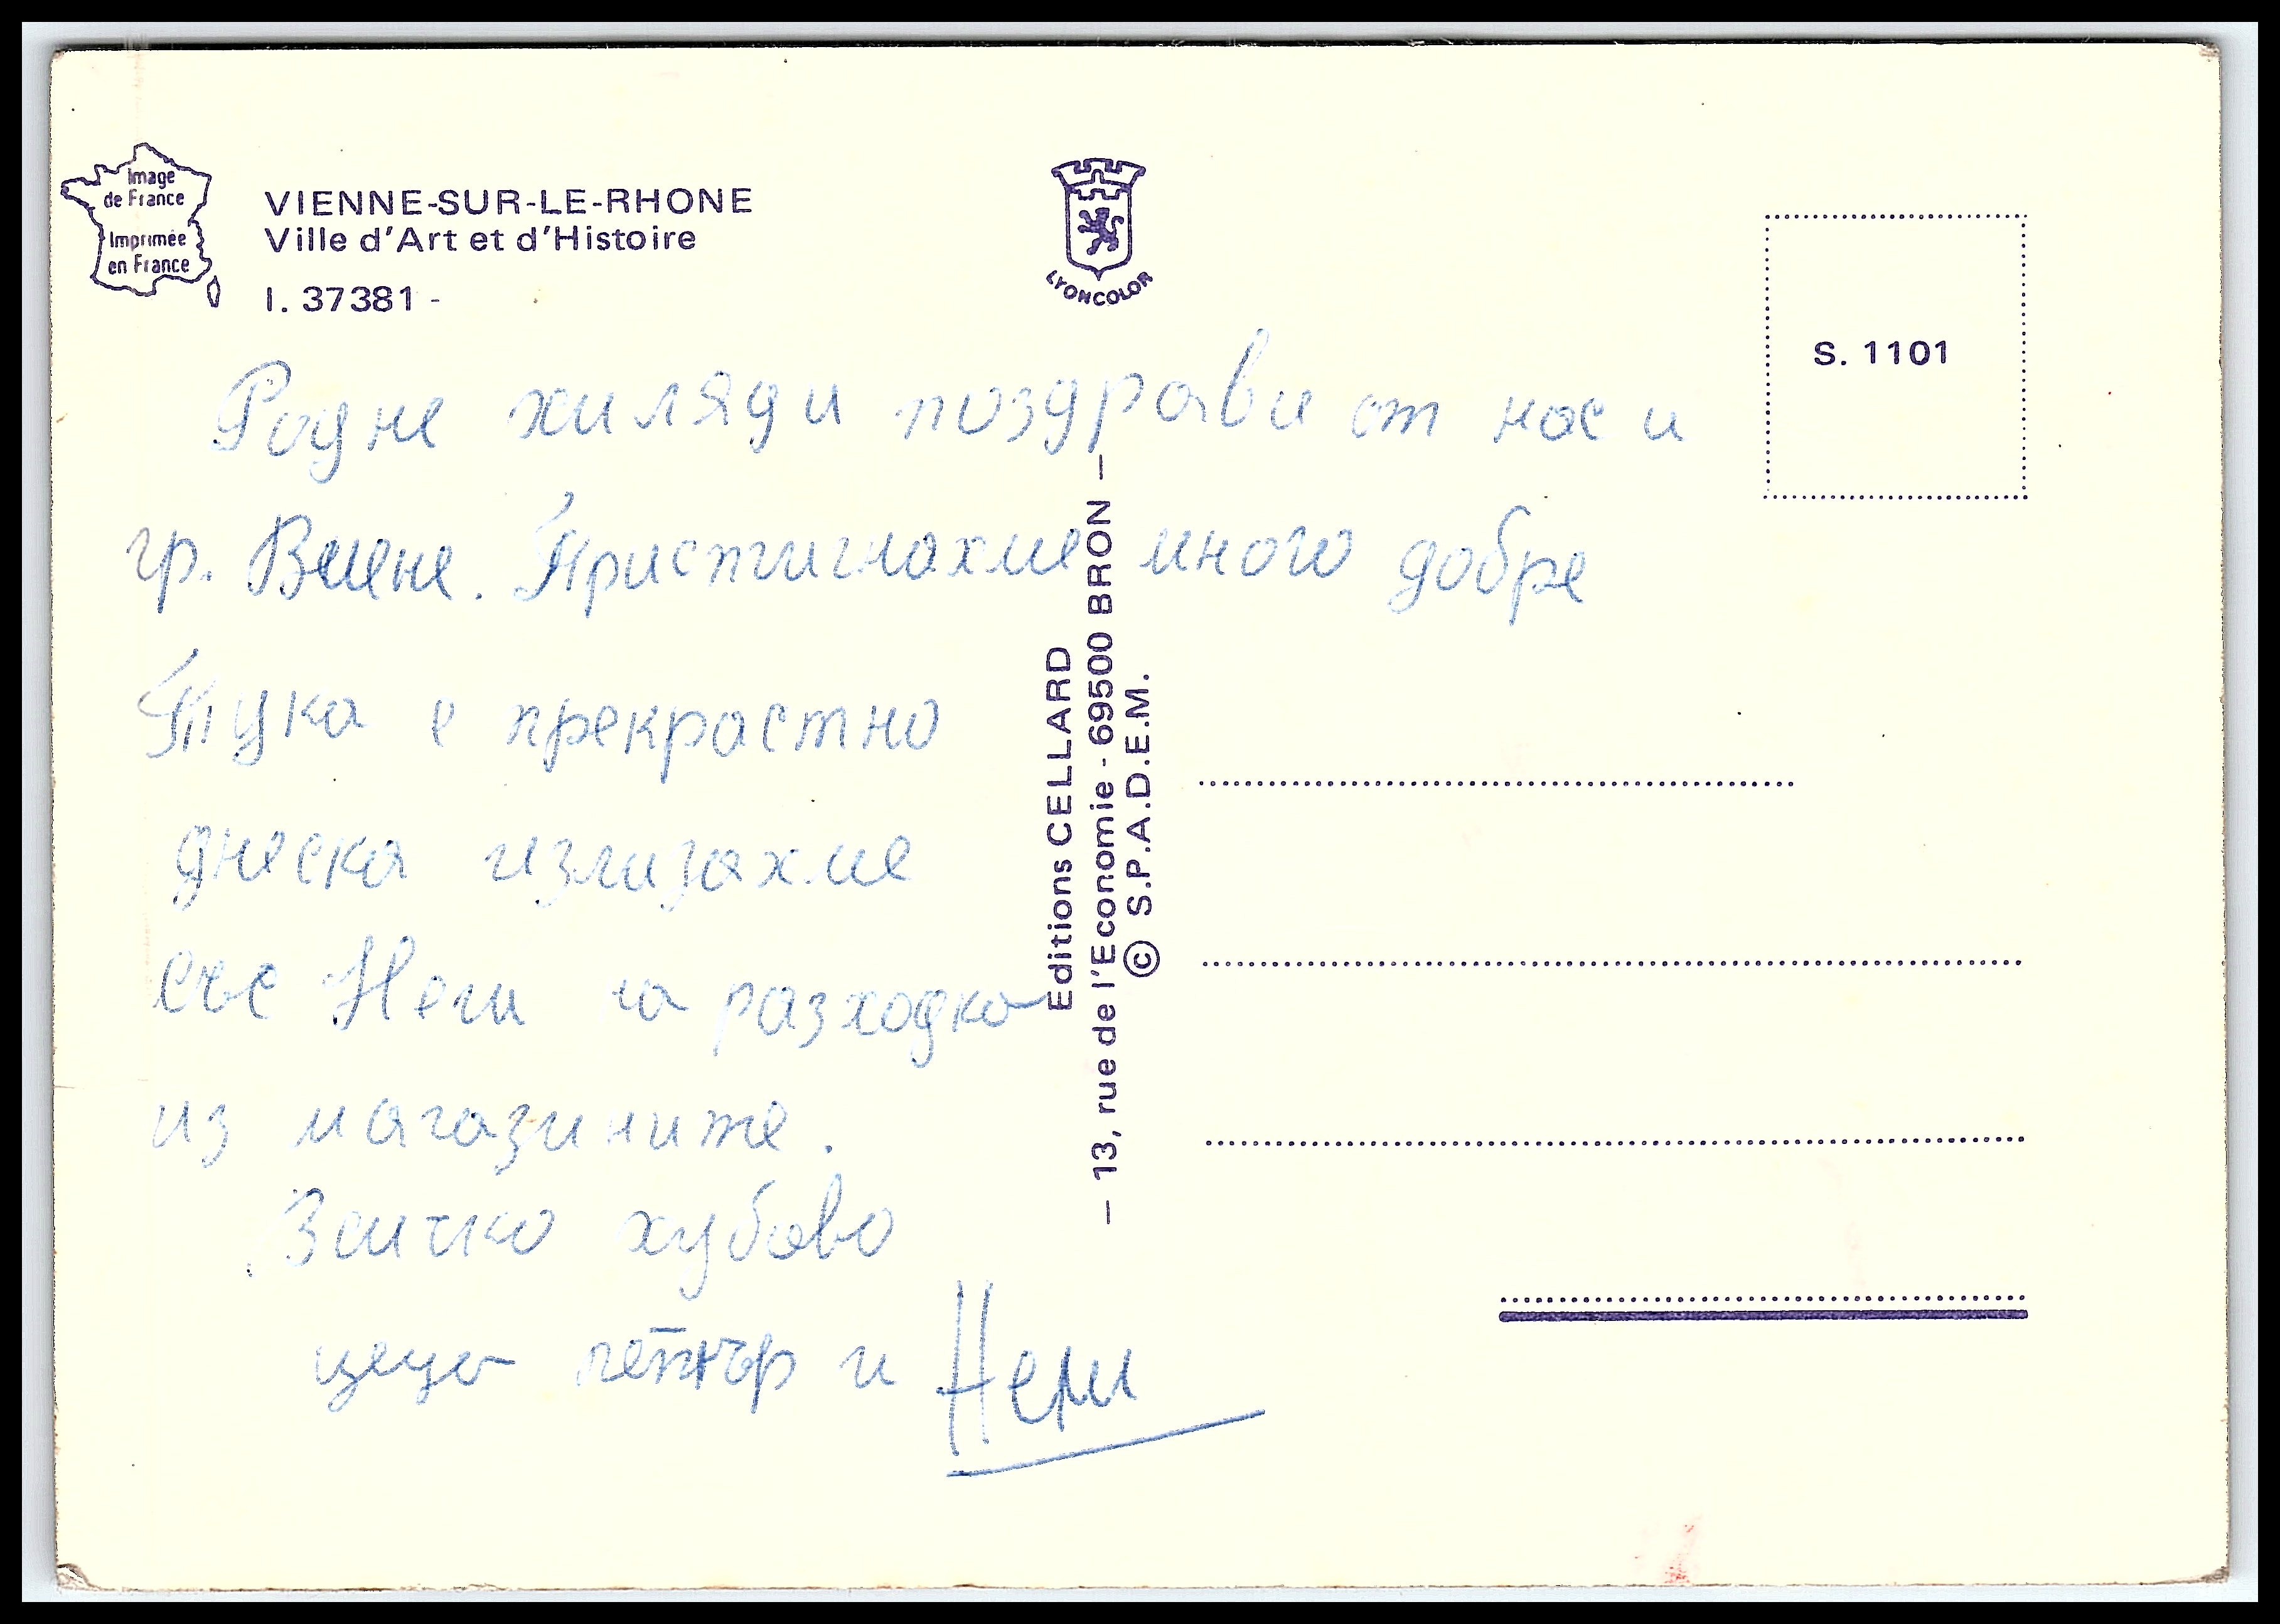 Image
de France
Imprimée
en France
VIENNE-SUR-LE-RHONE
Ville d'Art et d'Histoire
I. 37381 -
LYONCOLOR
S. 1101
Родне хиляди поздрави от нас и
гр. Виене. Пристигнахме много добре
Тука е прекрастно
днеска излизахме
със Нели на разходка
из магазините.
Всичко хубаво
цецо петър и Нели
Editions CELLARD
– 13, rue de l'Economie - 69500 BRON –
© S.P.A.D.E.M.